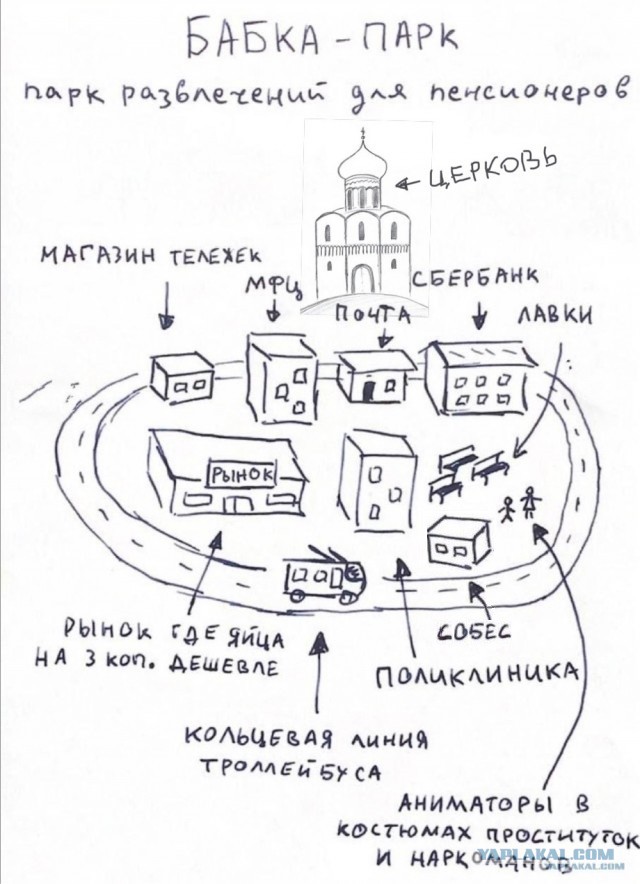 БАБКА - ПАРК
парк развлечений для пенсионеров
ЦЕРКОВЬ
МАГАЗИН ТЕЛЕЖЕК
МФЦ
ПОЧТА
СБЕРБАНК
ЛАВКИ
РЫНОК
РЫНОК ГДЕ ЯЙЦА
НА 3 КОП. ДЕШЕВЛЕ
СОБЕС
ПОЛИКЛИНИКА
КОЛЬЦЕВАЯ ЛИНИЯ
ТРОЛЛЕЙБУСА
АНИМАТОРЫ В
КОСТЮМАХ ПРОСТИТУТОК
И НАРКОМАНОВ
YAPLAKAL.COM
YAPLAKAL.COM